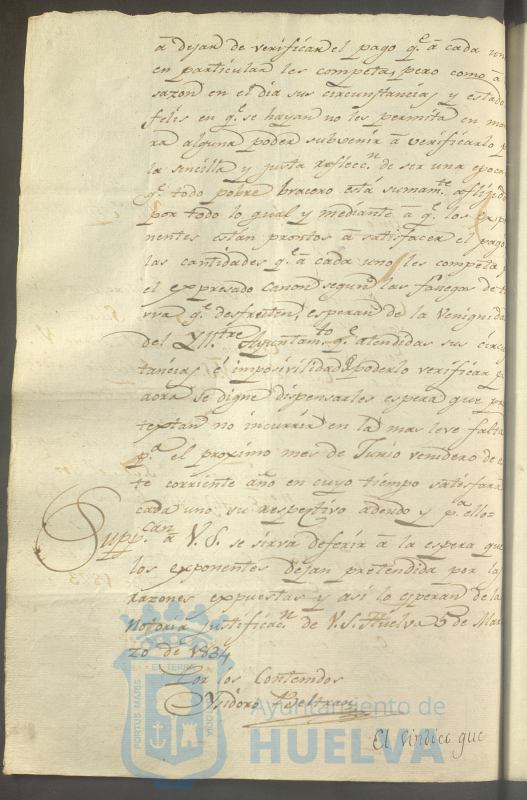 a dejar de verificar el pago q.e a cada un
en particular les competa, pero como a
sazon en el dia sus circunstancias y estado
felis en q.e se hayan no les permita en ma
ra alguna poder subvenir a verificarlo p
la sencilla y justa reflecc.n de ser una epoca
q.e todo pobre bracero está sumam.te afligido
por todo lo qual y mediante a q.e los exp
nentes estan prontos a satisfacer el pago
las cantidades q.e a cada uno les competa
el expresado canon segun las fanegas de
rra q.e desfruten, esperan de la Venignida
del Yll.tre Ayuntam.to q.e atendidas sus circu
tancias, é imposivilidad poderlo verificar p
aora se digne dispensarles espera que pr
textan no incurrir en la mas leve falta
p.a el proximo mes de Junio venidero de e
te corriente año en cuyo tiempo satisfara
cada uno su respectivo adeudo y p.a ello=
Supp.can a V.S. se sirva deferir a la espera que
los exponentes dejan pretendida por las
razones expuestas y asi lo esperan de la
Notoria justificac.n de V.S. Huelva 6 de Mar
zo de 1834
Por los Contenidos
Ysidoro Beltran
El Sindico que
Ayuntamiento de
HUELVA
PORTUS MARIS
ET TERRAE
CUSTODIA